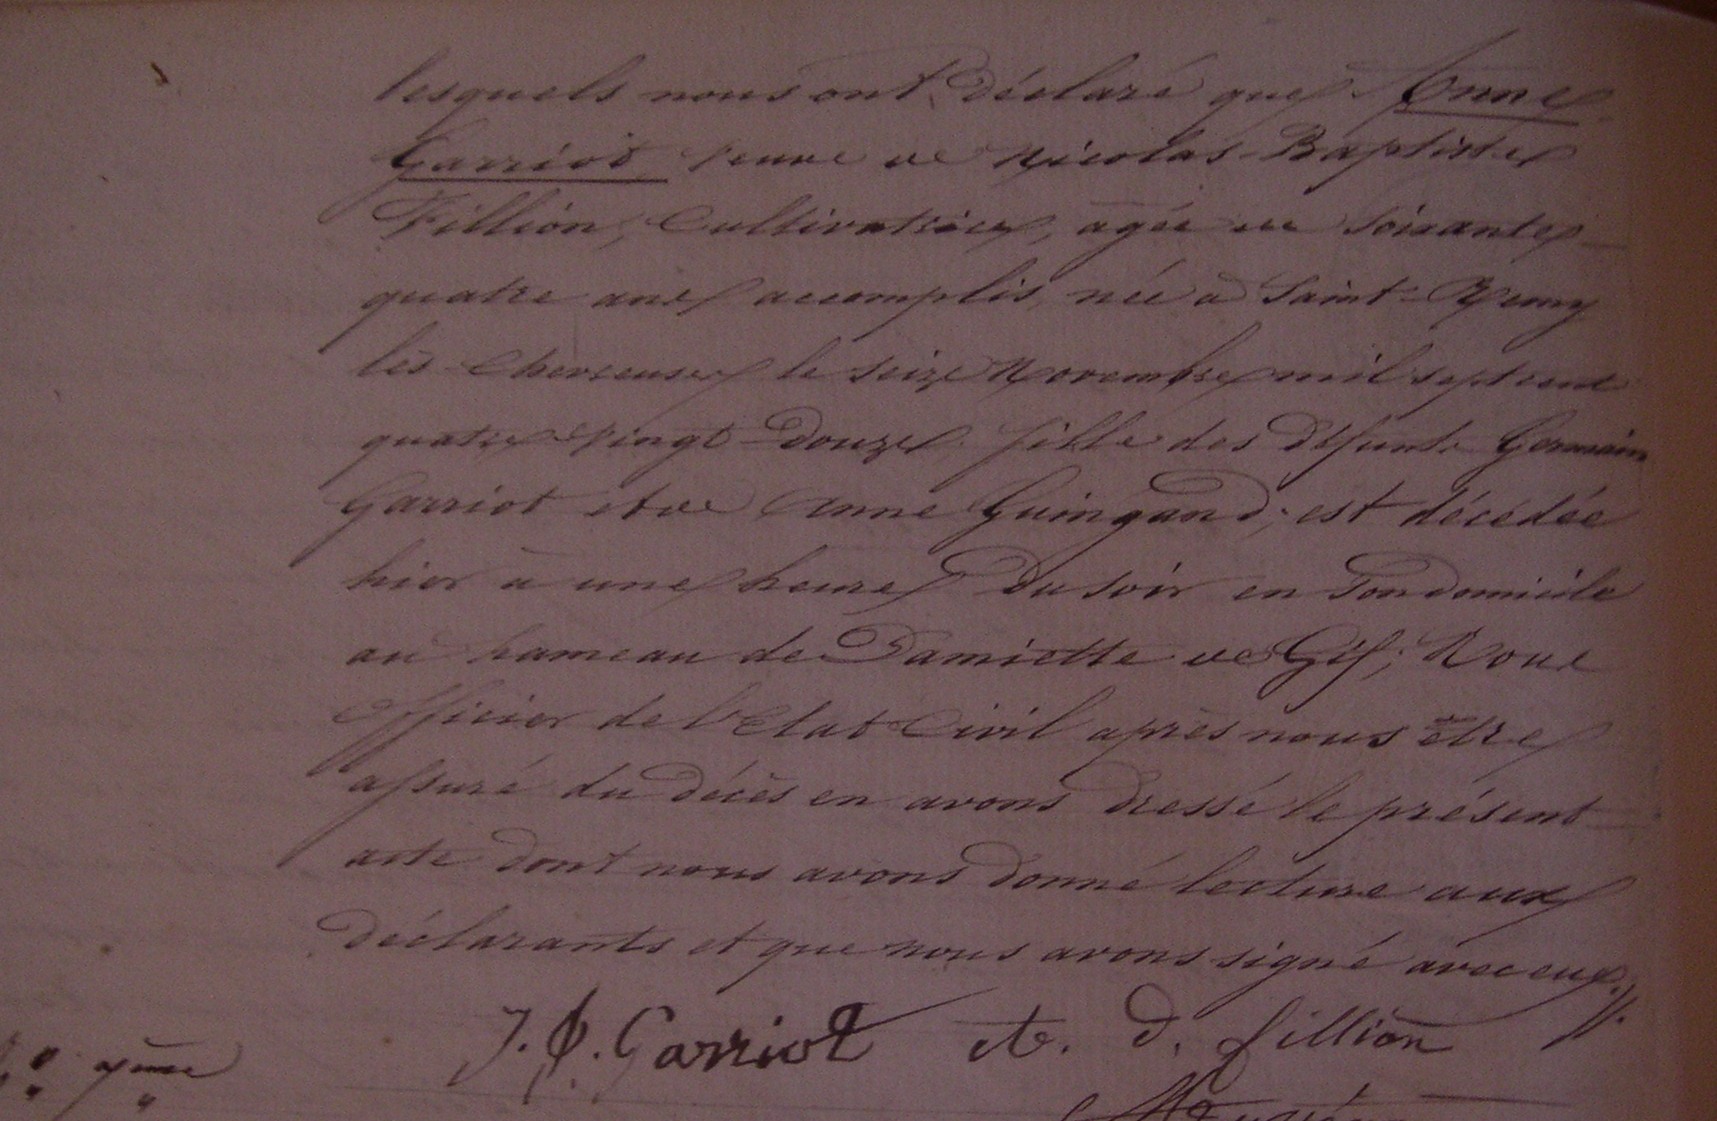 lesquels nous ont déclaré que Anne
Garriot, veuve de Nicolas-Baptiste
Fillion, Cultivatrice, agée de Soixante
quatre ans accomplis, née à Saint-Remy
lès Chevreuse le seize Novembre mil sept cent
quatre vingt-douze, fille des défunts Germain
Garriot et de Anne Guingand; est décédée
hier à une heure du soir en son domicile
au hameau de Damiette de Gif; Nous
Officier de l'Etat Civil après nous être
assuré du décès en avons dressé le présent
acte dont nous avons donné lecture aux
déclarants et que nous avons signé avec eux./.
J. P. Garriot
D. fillion